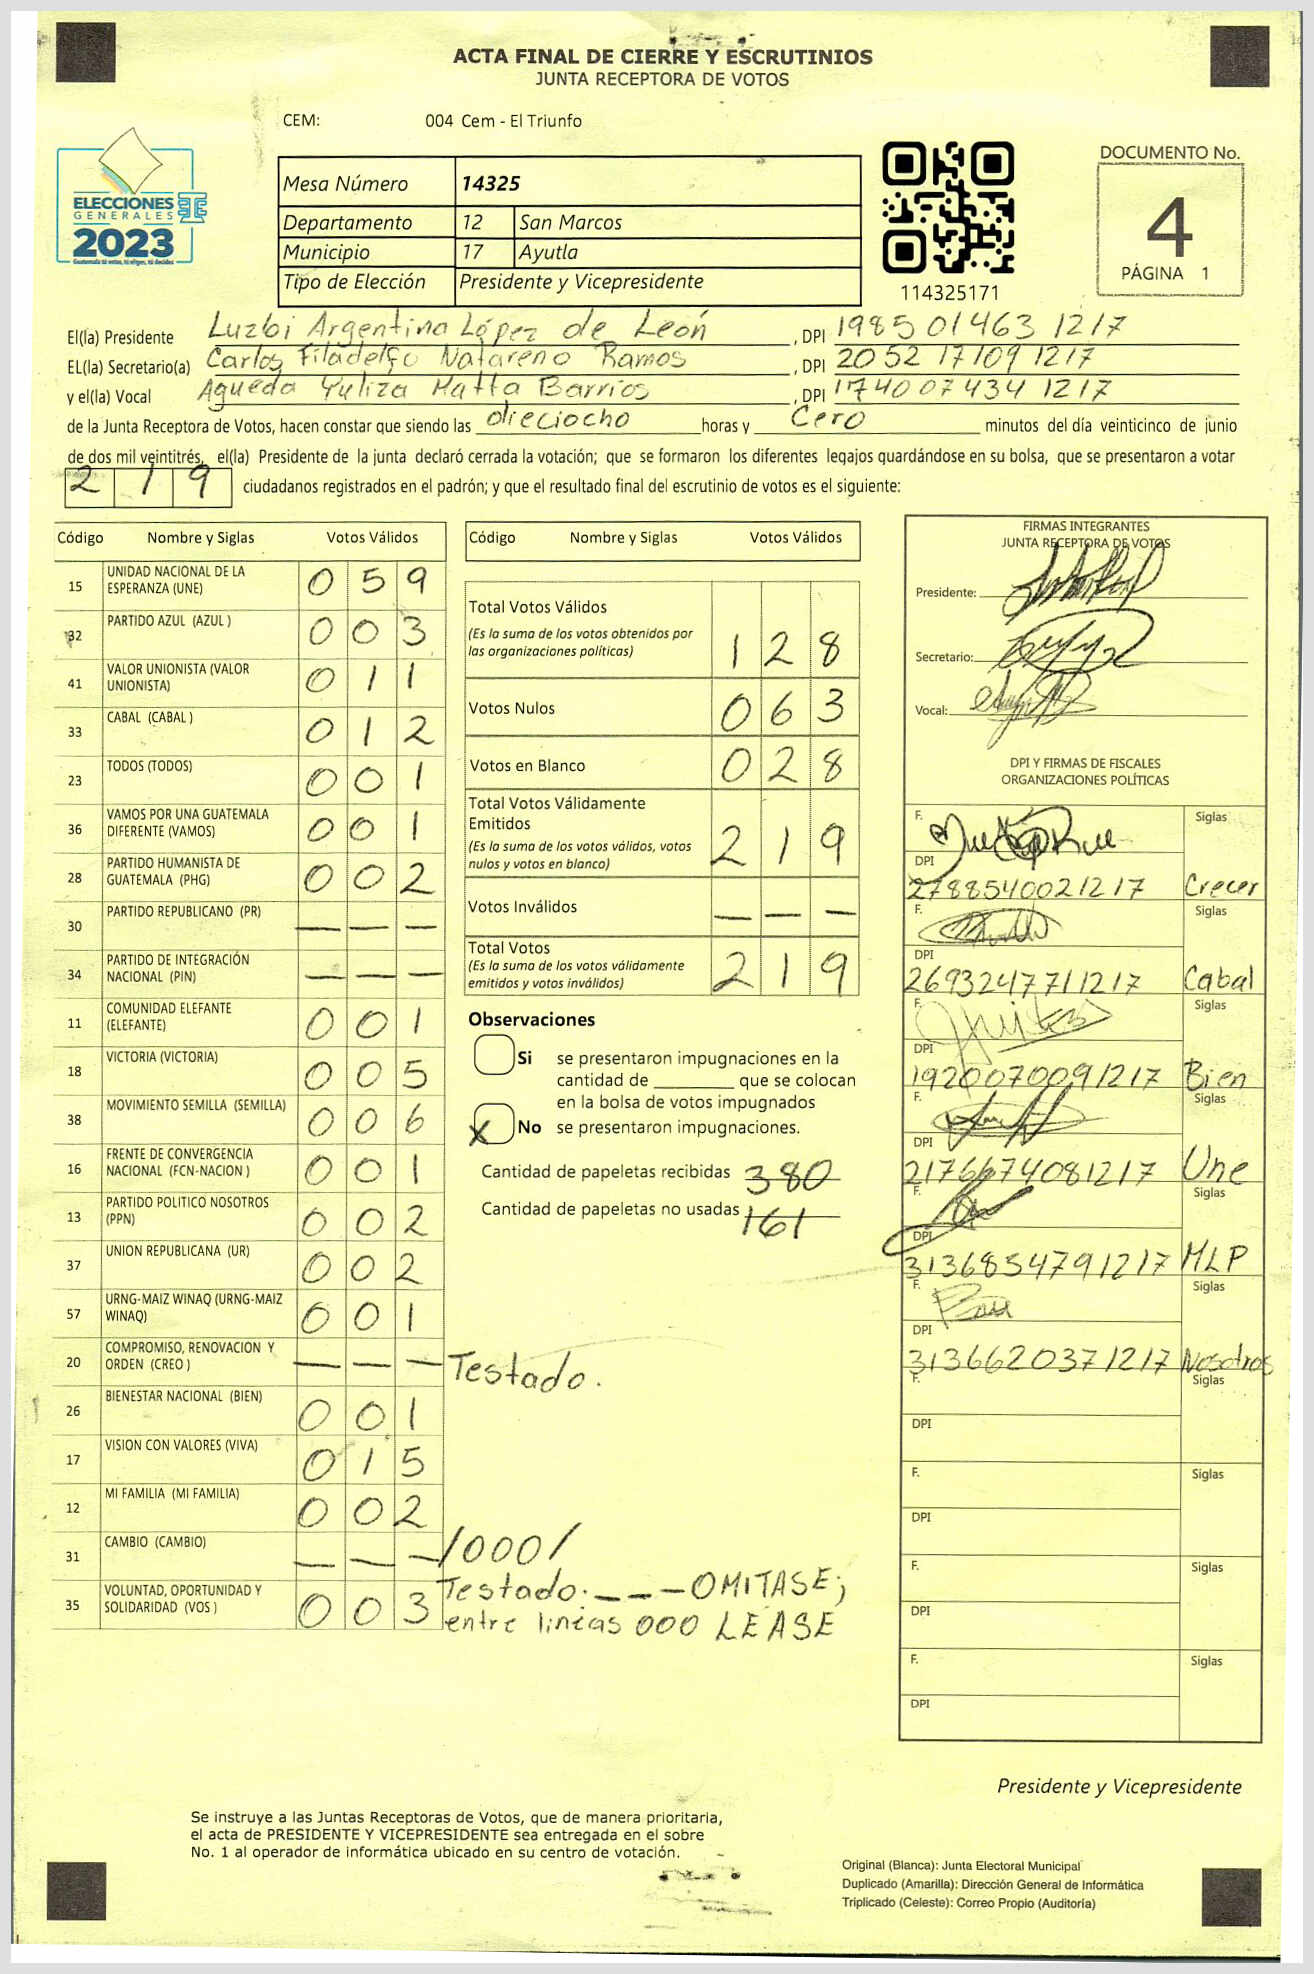 ACTA FINAL DE CIERRE Y ESCRUTINIOS
JUNTA RECEPTORA DE VOTOS
CEM: 004 Cem - El Triunfo
ELECCIONES
GENERALES
2023
Guatemala tú votas, tú eliges, tú decides
Mesa Número 14325
Departamento 12 San Marcos
Municipio 17 Ayutla
Tipo de Elección Presidente y Vicepresidente
114325171
DOCUMENTO No.
4
PÁGINA 1
El(la) Presidente Luzbi Argentina López de León, DPI 1985 01463 1217
EL(la) Secretario(a) Carlos Filadelfo Natareno Ramos, DPI 2052 17109 1217
y el(la) Vocal Agueda Yuliza Matta Barrios, DPI 1740 07434 1217
de la Junta Receptora de Votos, hacen constar que siendo las dieciocho horas y Cero minutos del día veinticinco de junio
de dos mil veintitrés, el(la) Presidente de la junta declaró cerrada la votación; que se formaron los diferentes legajos guardándose en su bolsa, que se presentaron a votar
2 1 9 ciudadanos registrados en el padrón; y que el resultado final del escrutinio de votos es el siguiente:
Código Nombre y Siglas Votos Válidos
15 UNIDAD NACIONAL DE LA ESPERANZA (UNE) 0 5 9
32 PARTIDO AZUL (AZUL ) 0 0 3
41 VALOR UNIONISTA (VALOR UNIONISTA) 0 1 1
33 CABAL (CABAL ) 0 1 2
23 TODOS (TODOS) 0 0 1
36 VAMOS POR UNA GUATEMALA DIFERENTE (VAMOS) 0 0 1
28 PARTIDO HUMANISTA DE GUATEMALA (PHG) 0 0 2
30 PARTIDO REPUBLICANO (PR) — — —
34 PARTIDO DE INTEGRACIÓN NACIONAL (PIN) — — —
11 COMUNIDAD ELEFANTE (ELEFANTE) 0 0 1
18 VICTORIA (VICTORIA) 0 0 5
38 MOVIMIENTO SEMILLA (SEMILLA) 0 0 6
16 FRENTE DE CONVERGENCIA NACIONAL (FCN-NACION ) 0 0 1
13 PARTIDO POLITICO NOSOTROS (PPN) 0 0 2
37 UNION REPUBLICANA (UR) 0 0 2
57 URNG-MAIZ WINAQ (URNG-MAIZ WINAQ) 0 0 1
20 COMPROMISO, RENOVACION Y ORDEN (CREO ) — — — Testado.
26 BIENESTAR NACIONAL (BIEN) 0 0 1
17 VISION CON VALORES (VIVA) 0 1 5
12 MI FAMILIA (MI FAMILIA) 0 0 2
31 CAMBIO (CAMBIO) — — — /000/
35 VOLUNTAD, OPORTUNIDAD Y SOLIDARIDAD (VOS ) 0 0 3
Testado: — — — OMITASE;
entre lineas 000 LEASE
Código Nombre y Siglas Votos Válidos
Total Votos Válidos
(Es la suma de los votos obtenidos por
las organizaciones políticas) 1 2 8
Votos Nulos 0 6 3
Votos en Blanco 0 2 8
Total Votos Válidamente
Emitidos
(Es la suma de los votos válidos, votos
nulos y votos en blanco) 2 1 9
Votos Inválidos — — —
Total Votos
(Es la suma de los votos válidamente
emitidos y votos inválidos) 2 1 9
Observaciones
Si se presentaron impugnaciones en la
cantidad de ________ que se colocan
en la bolsa de votos impugnados
X No se presentaron impugnaciones.
Cantidad de papeletas recibidas 380
Cantidad de papeletas no usadas 161
FIRMAS INTEGRANTES
JUNTA RECEPTORA DE VOTOS
Presidente:
Secretario:
Vocal:
DPI Y FIRMAS DE FISCALES
ORGANIZACIONES POLÍTICAS
F. Siglas
DPI
2788540021217 Crecer
F. Siglas
DPI
2693247711217 Cabal
F. Siglas
DPI
1920070091217 Bien
F. Siglas
DPI
2176674081217 Une
F. Siglas
DPI
3136854791217 MLP
F. Siglas
DPI
3136620371217 Nosotros
F. Siglas
DPI
F. Siglas
DPI
F. Siglas
DPI
F. Siglas
DPI
Presidente y Vicepresidente
Se instruye a las Juntas Receptoras de Votos, que de manera prioritaria,
el acta de PRESIDENTE Y VICEPRESIDENTE sea entregada en el sobre
No. 1 al operador de informática ubicado en su centro de votación.
Original (Blanca): Junta Electoral Municipal
Duplicado (Amarilla): Dirección General de Informática
Triplicado (Celeste): Correo Propio (Auditoría)